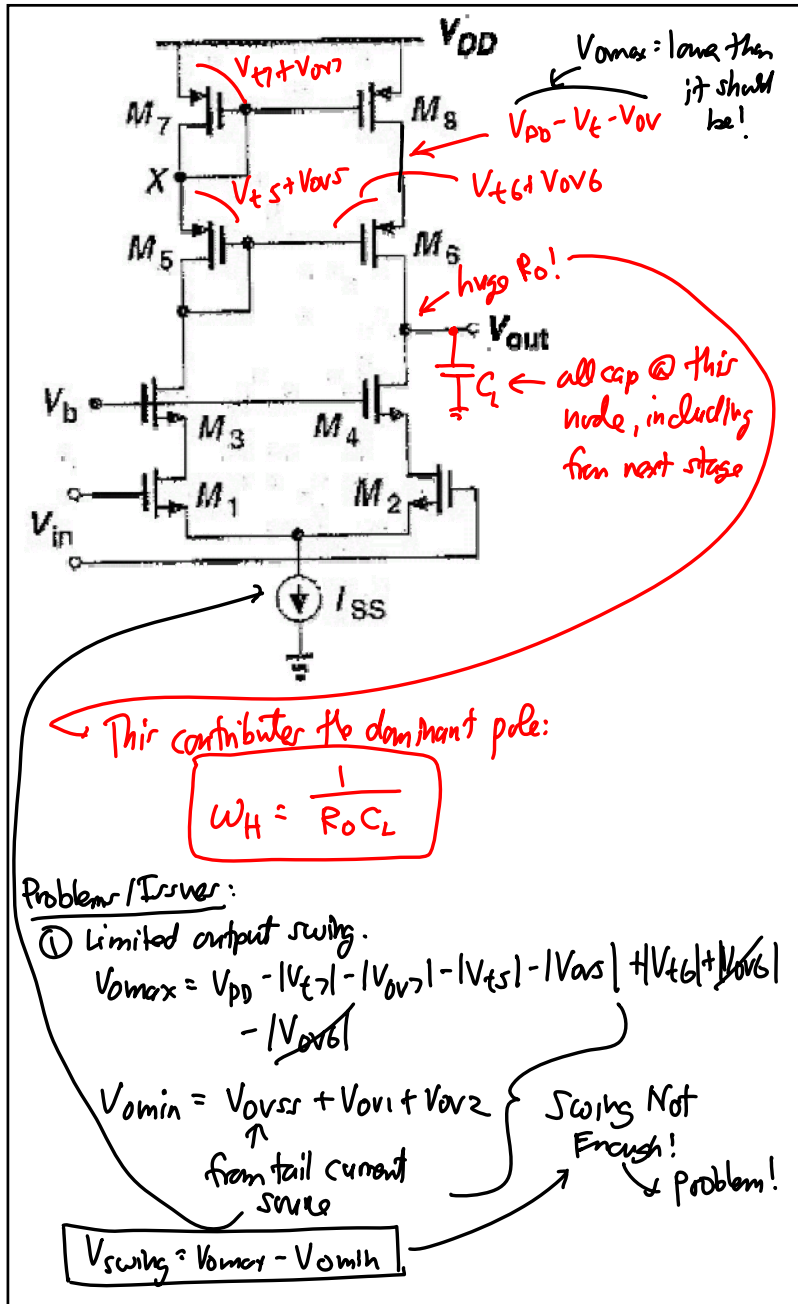 V_DD
V_t7+V_ov7
V_omax = lower than
it should
be!
M_7
M_8
V_DD - V_t - V_ov
X
V_t5+V_ov5
V_t6+V_ov6
M_5
M_6
huge R_o!
V_out
C_L ← all cap @ this
node, including
from next stage
V_b
M_3
M_4
M_1
M_2
V_in
I_SS
This contributes the dominant pole:
ω_H = 1/(R_o C_L)
Problems/Issues:
① Limited output swing.
V_omax = V_DD - |V_t7| - |V_ov7| - |V_t5| - |V_ov5| + |V_t6| + |V_ov6|
- |V_ov6|
V_omin = V_ovss + V_ov1 + V_ov2
Swing Not
Enough!
↑
from tail current
source
→ problem!
V_swing = V_omax - V_omin